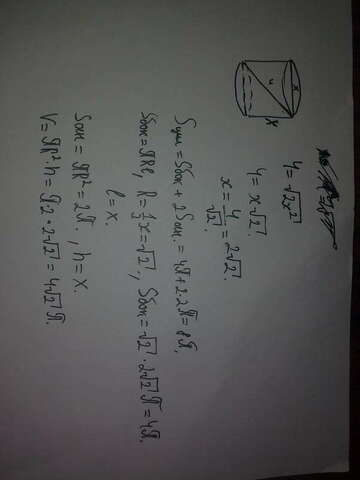 4 = √2x²
4 = x√2
x = 4/√2 = 2√2
Sцил = Sбок + 2Sосн. = 4π + 2·2π = 8π.
Sбок = πRl, R = 1/2x = √2, Sбок = √2·2√2π = 4π.
l = x.
Sосн = πR² = 2π., h = x.
V = πR²·h = π2·2√2 = 4√2π.
4
x
x